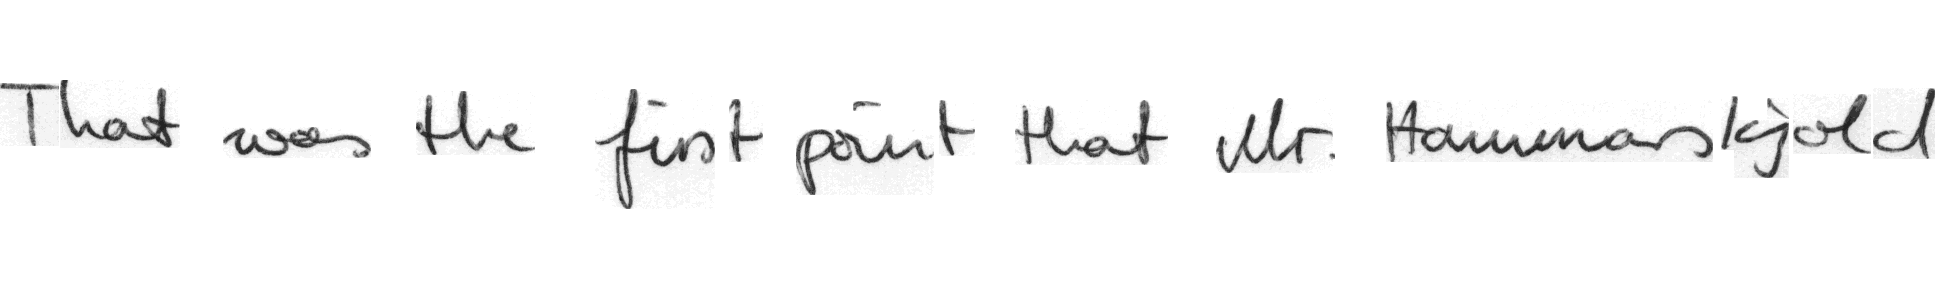 That was the first point that Mr. Hammarskjold